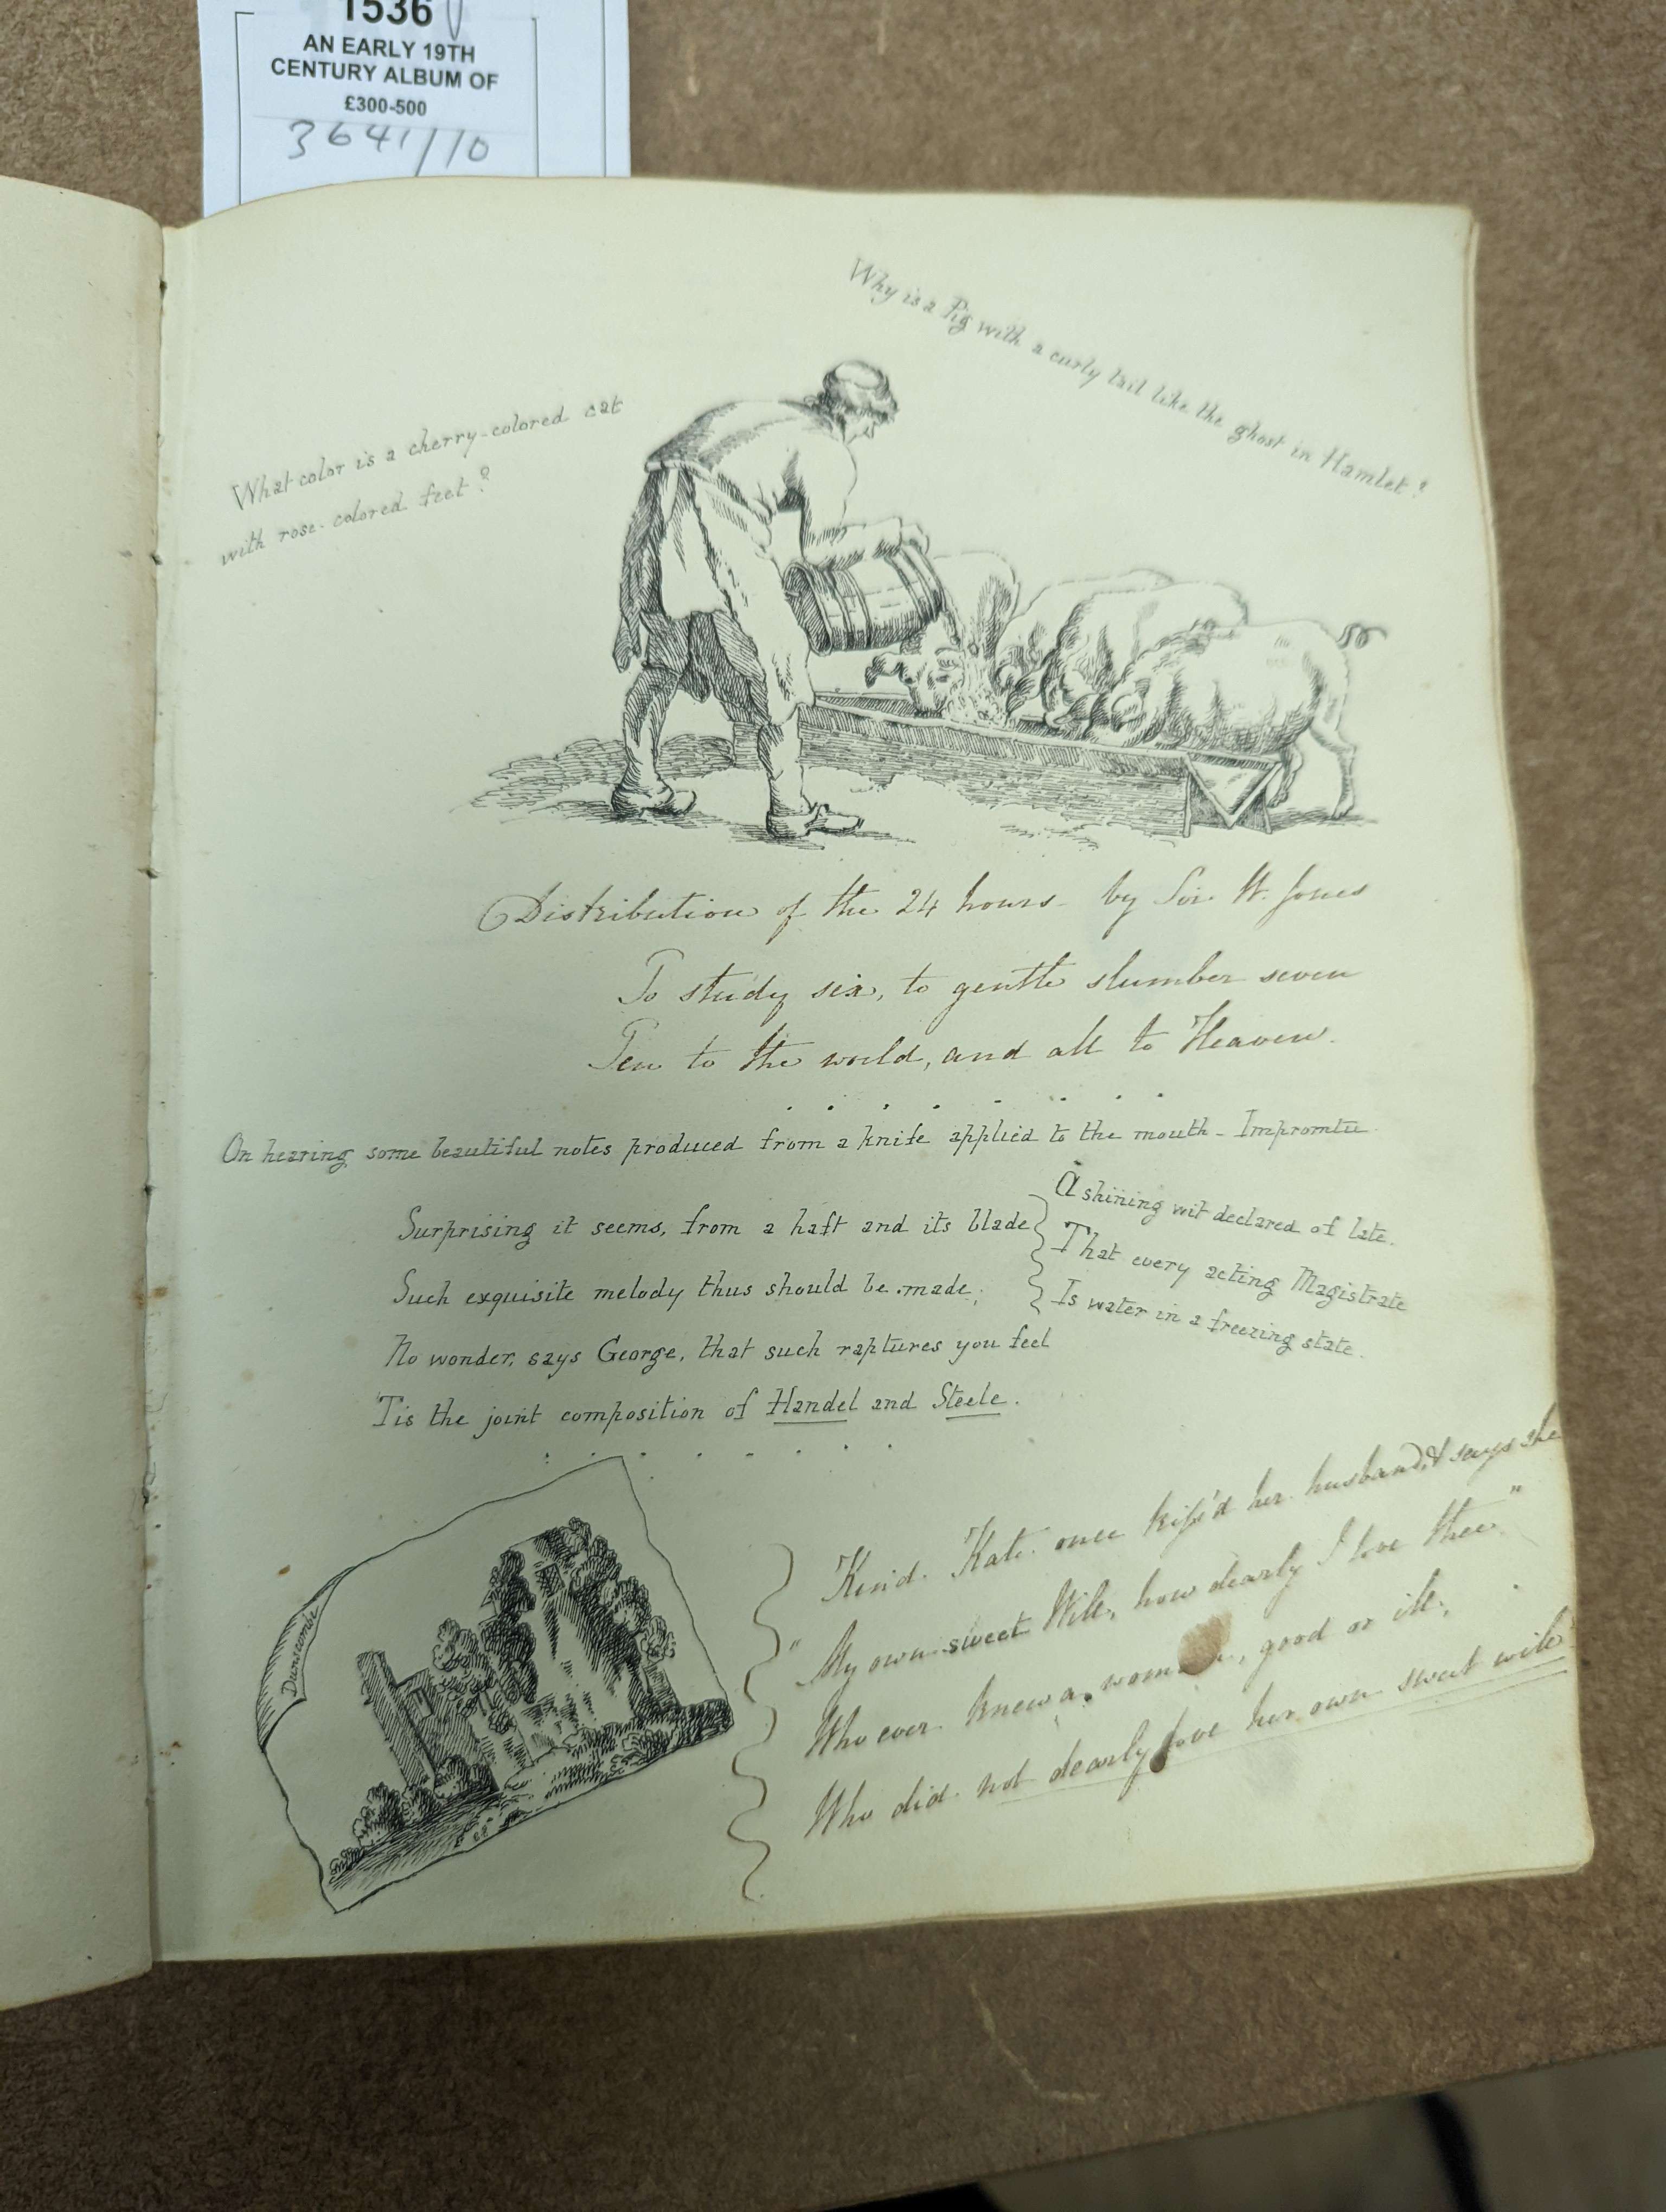 1536
AN EARLY 19TH
CENTURY ALBUM OF
£300-500
3641/10
Why is a Pig with a curly tail like the ghost in Hamlet?
What color is a cherry-colored cat
with rose-colored feet?
Distribution of the 24 hours - by Sir W. Jones
To study six, to gentle slumber seven
Ten to the world, and all to Heaven.
On hearing some beautiful notes produced from a knife applied to the mouth - Impromtu
Surprising it seems, from a haft and its blade
Such exquisite melody thus should be made;
No wonder, says George, that such raptures you feel
Tis the joint composition of Handel and Steele.
A shining wit declared of late.
That every acting Magistrate
Is water in a freezing state.
Dunscombe
Kind Kate once kiss'd her husband, & says she
"My own sweet Will, how dearly I love thee"
Who ever knew a, good or ill,
Who did not dearly love her own sweet will